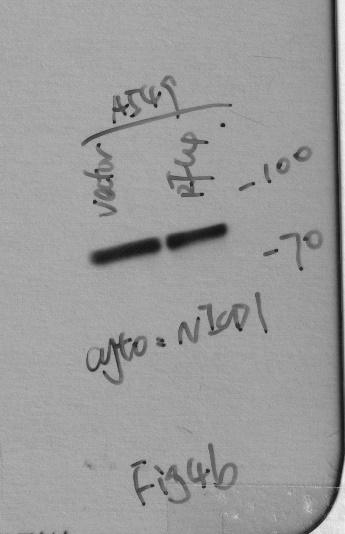 A549
vector
-100
-70
cyto: NICD1
Fig4b